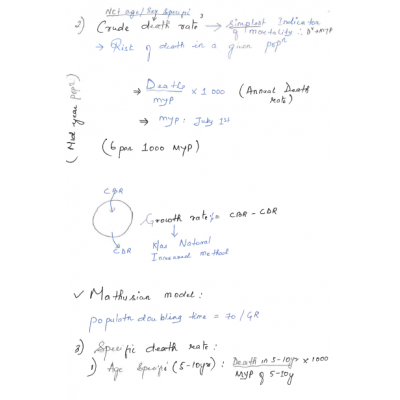 Not age/sex specific
2) Crude death rate → Simplest Indicator of mortality ∴ D+MYP
→ Risk of death in a given popn
(Mid-year popn)
⇒ Death / MYP × 1000 (Annual Death rate)
⇒ MYP : July 1st
(6 per 1000 MYP)
CBR
Growth rate % CBR - CDR
CDR
Natural
Increased method
✓ Mathusian model :
populatn doubling time = 70 / GR
3) Specific death rate :
1) Age Specifi (5-10yrs) : Death in 5-10yr × 1000 / MYP of 5-10y